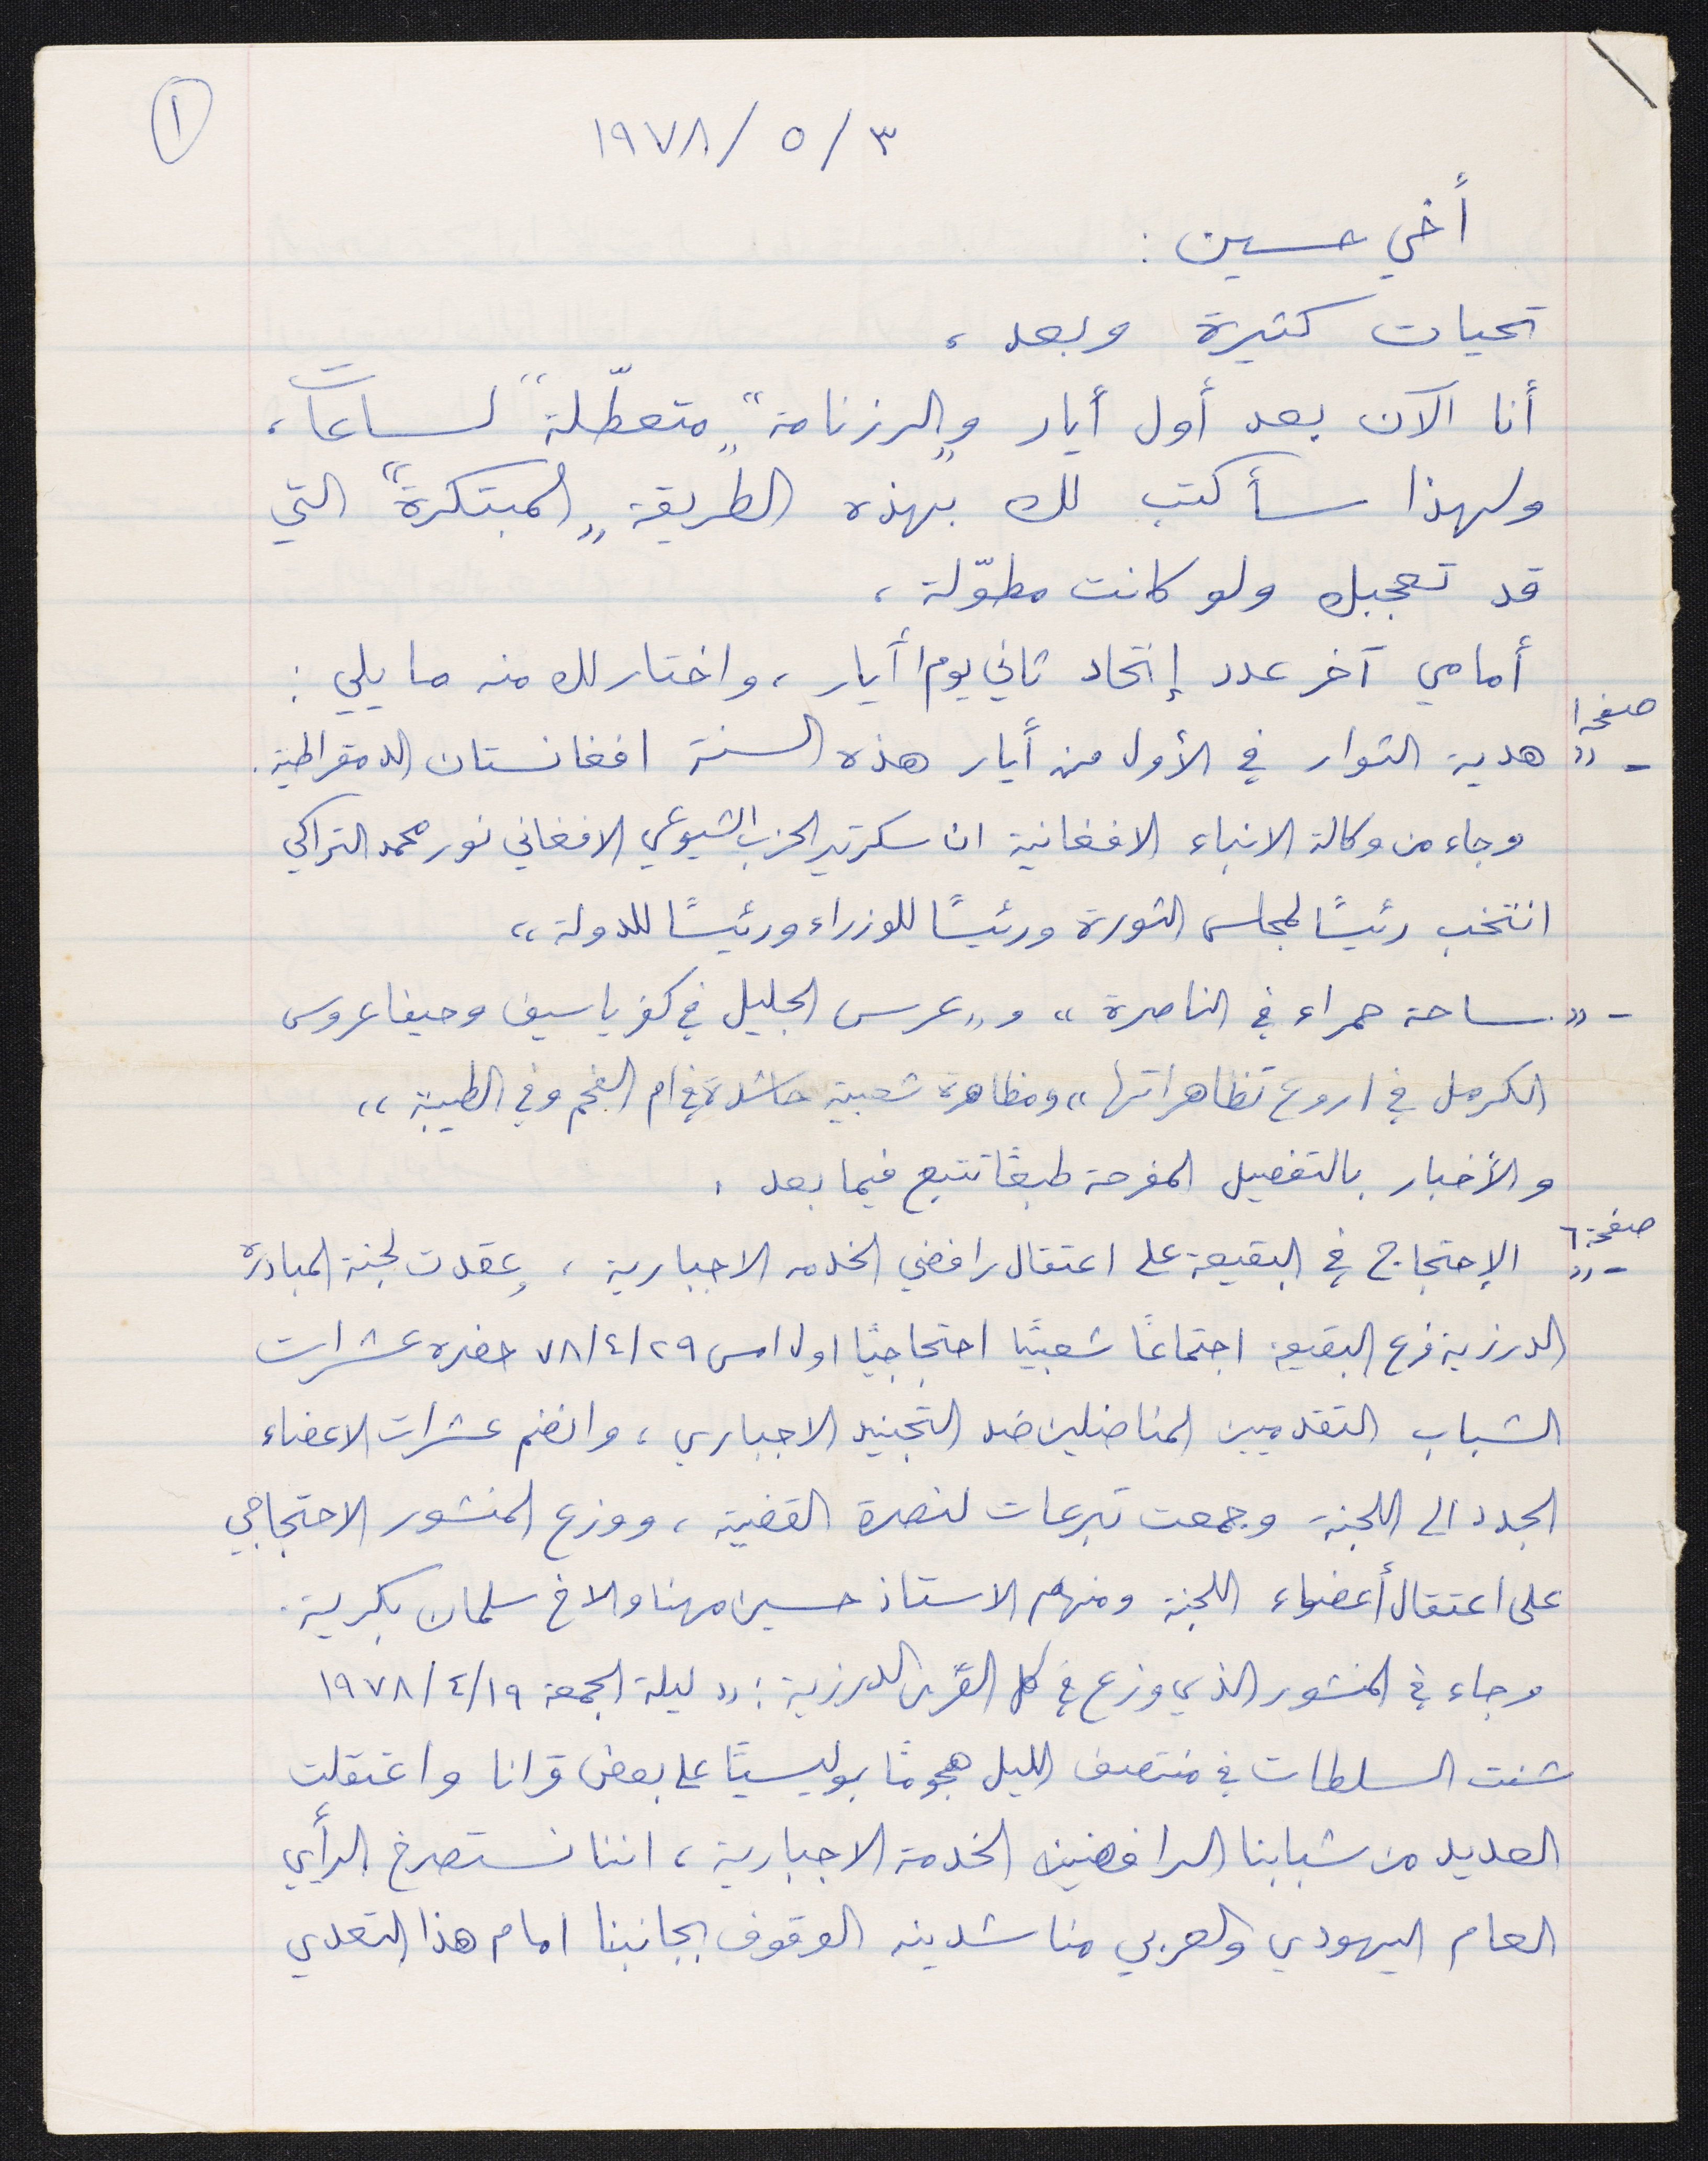 ١
٣ / ٥ / ١٩٧٨
أخي حسين :
تحيات كثيرة وبعد ،
أنا الآن بعد أول أيار و„الرزنامة“ „متعطّلة“ لساعات ،
ولهذا سأكتب لك بهذه الطريقة „المبتكرة“ التي
قد تعجبك ولو كانت مطوّلة ،
أمامي آخر عدد إتحاد ثاني يوم أيار ، واختار لك منه ما يلي :
صفحة ١
- „ هدية الثوار في الأول من أيار هذه السنة افغانستان الدمقراطية .
وجاء من وكالة الانباء الافغانية ان سكرتير الحزب الشيوعي الافغاني نور محمد التراكي
انتخب رئيسًا لمجلس الثورة ورئيسًا للوزراء ورئيسًا للدولة “
- „ ساحة حمراء في الناصرة “ و „ عرس الجليل في كفر ياسيف وحيفا عروس
الكرمل في اروع تظاهراتها “ ومظاهرة شعبية حاشدة في ام الفحم وفي الطيبة “
والأخبار بالتفصيل المفرحة طبعًا تتبع فيما بعد .
صفحة ٦
- „ الإحتجاج في البقيعة على اعتقال رافضي الخدمه الاجبارية ، وعقدت لجنة المبادرة
الدرزية فرع البقيعة اجتماعًا شعبيًا احتجاجيًا اول امس ٧٨/٤/٢٩ حضره عشرات
الشباب التقدميين المناضلين ضد التجنيد الاجباري ، وانضم عشرات الاعضاء
الجدد الى اللجنة وجمعت تبرعات لنصرة القضية ، ووزع المنشور الاحتجاجي
على اعتقال أعضاء اللجنة ومنهم الاستاذ حسين مهنا والاخ سلمان بكرية .
وجاء في المنشور الذي وزع في كل القرى الدرزية : „ ليلة الجمعة ١٩٧٨/٤/١٩
شنت السلطات في منتصف الليل هجومًا بوليسيًا على بعض قرانا واعتقلت
العديد من شبابنا الرافضين الخدمة الاجبارية ، اننا نستصرخ الرأي
العام اليهودي والعربي مناشدينه الوقوف بجانبنا امام هذا التعدي